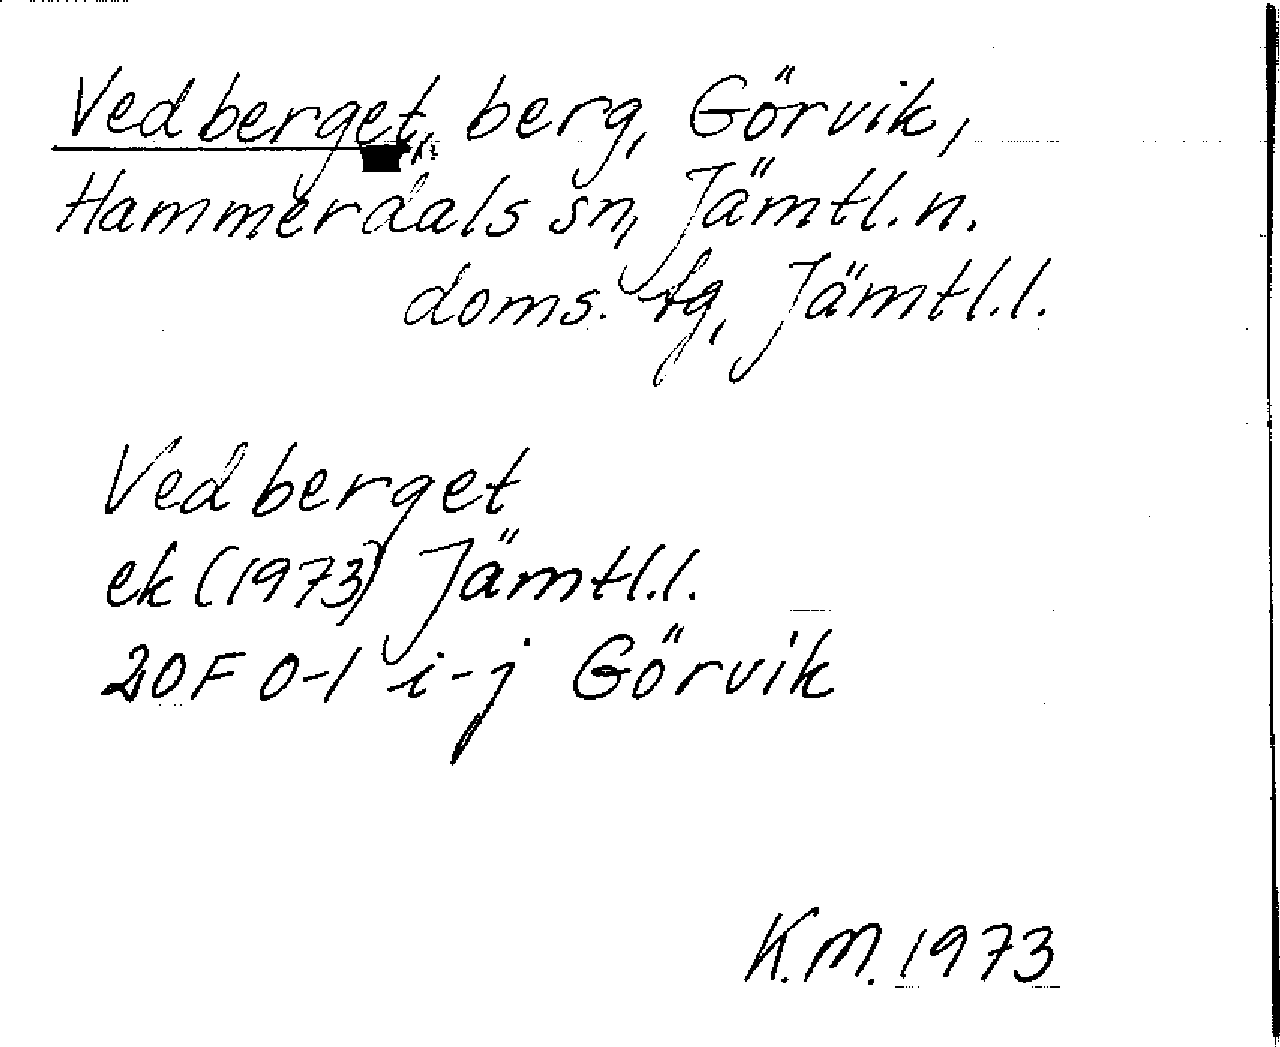 Vedberget, berg, Görvik,
Hammerdals sn, Jämtl. n.
doms. tg, Jämtl. l.
Vedberget
ek (1973) Jämtl. l.
20F 0-1 i-j Görvik
K.M. 1973